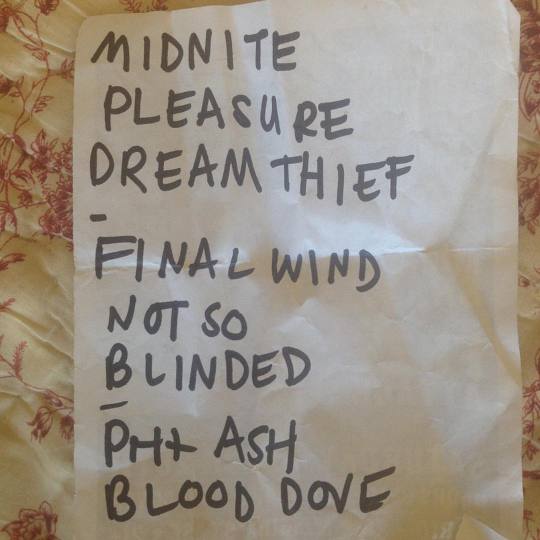 MIDNITE
PLEASURE
DREAM THIEF
-
FINAL WIND
NOT SO
BLINDED
-
PH+ ASH
BLOOD DOVE